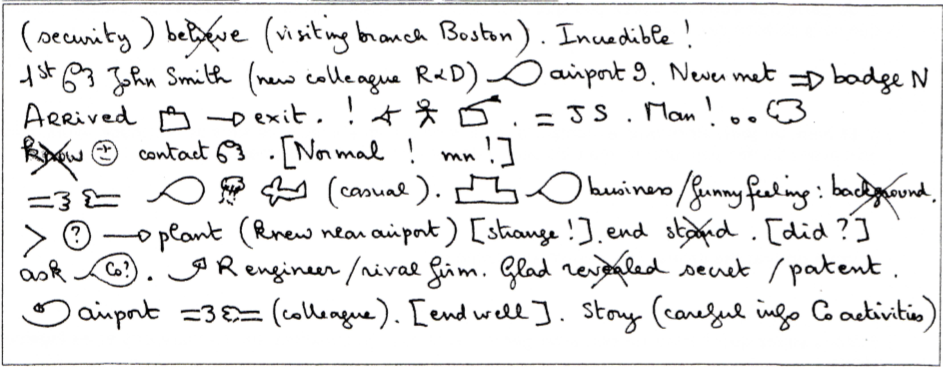 (security) believe (visiting branch Boston). Incredible!
1st John Smith (new colleague R&D) airport 9. Never met ⇒ badge N
Arrived → exit. ! . = JS. Man! ..
know contact . [Normal ! mn !]
= = (casual). business/funny feeling: background.
> ? → plant (knew near airport) [strange!]. end stand. [did?]
ask Co?. R engineer/rival firm. Glad revealed secret/patent.
airport = = (colleague). [end well]. Story (careful info Co activities)